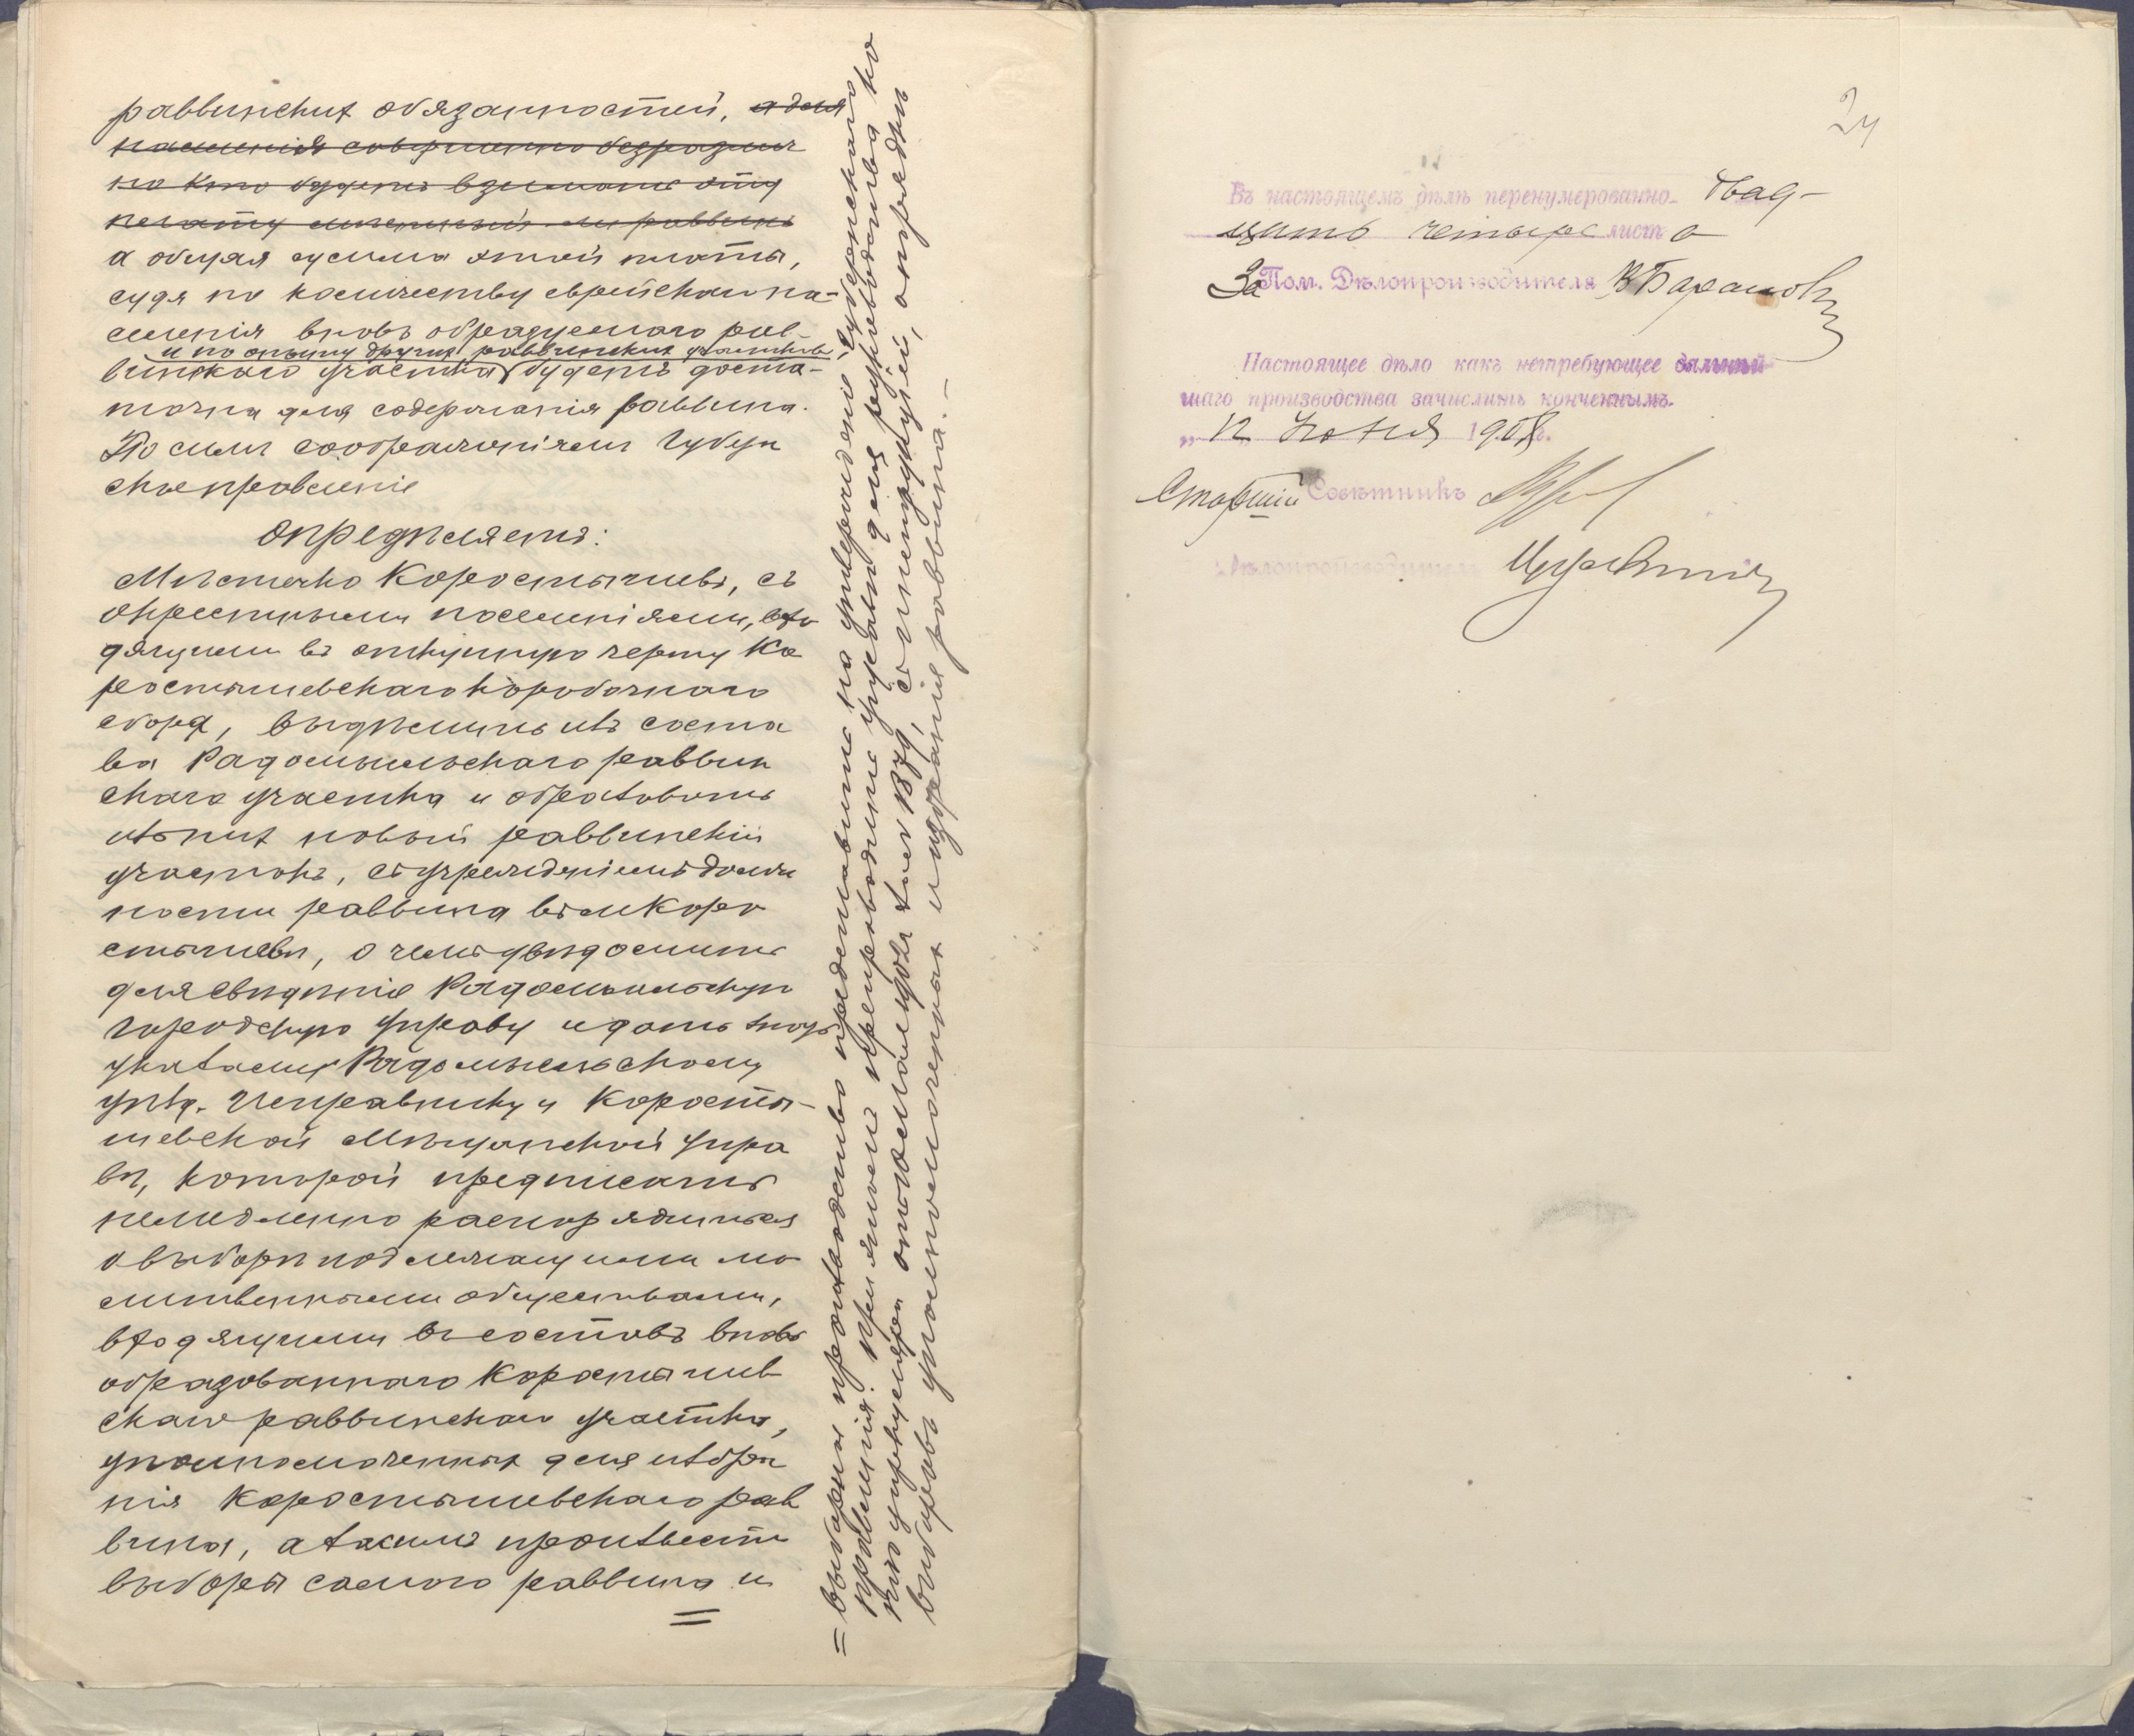 раввинскихъ обязанностей, а для
населенія совершенно безразлич
но кто будетъ взимать эту
а общая сумма этой платы,
судя по количеству еврейскаго на-
селенія вновь образуемаго рав-
и по опыту другихъ раввинскихъ участковъ
винскаго участка будетъ доста-
точна для содержанія раввина.
По симъ соображеніямъ Губерн
ское правленіе
опредѣляетъ:
Мѣстечко Коростышевъ, съ
окрестными поселеніями, вхо
дящими въ откупную черту Ко
ростышевскаго коробочнаго
сбора, выдѣлить изъ соста
ва Радомысльскаго раввин
скаго участка и образовать
изъ нихъ новый раввинскій
участокъ, съ учрежденіемъ долж
ности раввина въ м. Коро
стышевѣ, о чемъ увѣдомить
для свѣдѣнія Радомысльскую
Городскую управу и дать знать
указами Радомысльскому
уѣзд. Исправнику и Коросты-
шевской Мѣщанской управ
ѣ, которой предписать
немедленно распорядиться
о выборѣ подлежащими мо
литвенными обществами,
входящими въ составъ вновь
образованнаго Коростышев
скаго раввинскаго участка,
уполномоченныхъ для избра
нія Коростышевскаго рав
вина, а затѣмъ произвести
выборы самого раввина и
=
= выборное производство представить на утвержденіе Губернскаго
правленія. При этомъ препроводить управѣ для руководства ко
пію циркуляра отъ 1901 года за № 1379 съ инструкціей, о порядкѣ
выборовъ уполномоченныхъ и избранія раввина. —
24
Въ настоящемъ дѣлѣ перенумерованно двад-
цать четыре листа
За Пом. Дѣлопроизводителя В Барановъ
Настоящее дѣло какъ нетребующее дальнѣй
шаго производства зачислить конченнымъ.
„ 12 Іюня 1908 г.
Старшій Совѣтникъ
Дѣлопроизводитель